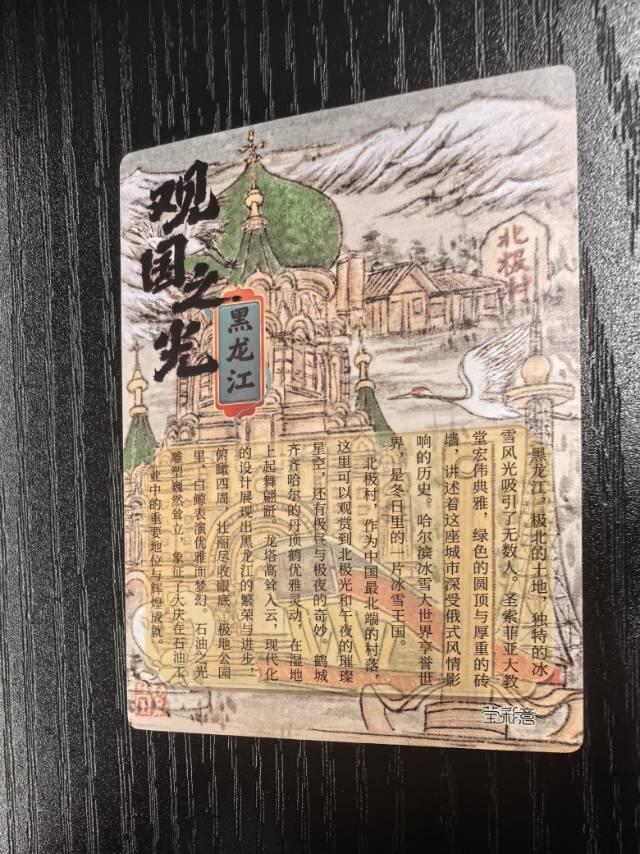 观国之光
黑龙江
北极村
黑龙江，极北的土地，独特的冰
雪风光吸引了无数人。圣索菲亚大教
堂宏伟典雅，绿色的圆顶与厚重的砖
墙，讲述着这座城市深受俄式风情影
响的历史。哈尔滨冰雪大世界享誉世
界，是冬日里的一片冰雪王国。
北极村，作为中国最北端的村落，
这里可以观赏到北极光和午夜的璀璨
星空，还有极昼与极夜的奇妙。鹤城
齐齐哈尔的丹顶鹤优雅灵动，在湿地
上起舞翩跹。龙塔高耸入云，现代化
的设计展现出黑龙江的繁荣与进步，
俯瞰四周，壮丽尽收眼底。极地公园
里，白鲸表演优雅而梦幻。石油之光
雕塑巍然耸立，象征了大庆在石油工
业中的重要地位与辉煌成就。
莹彩意